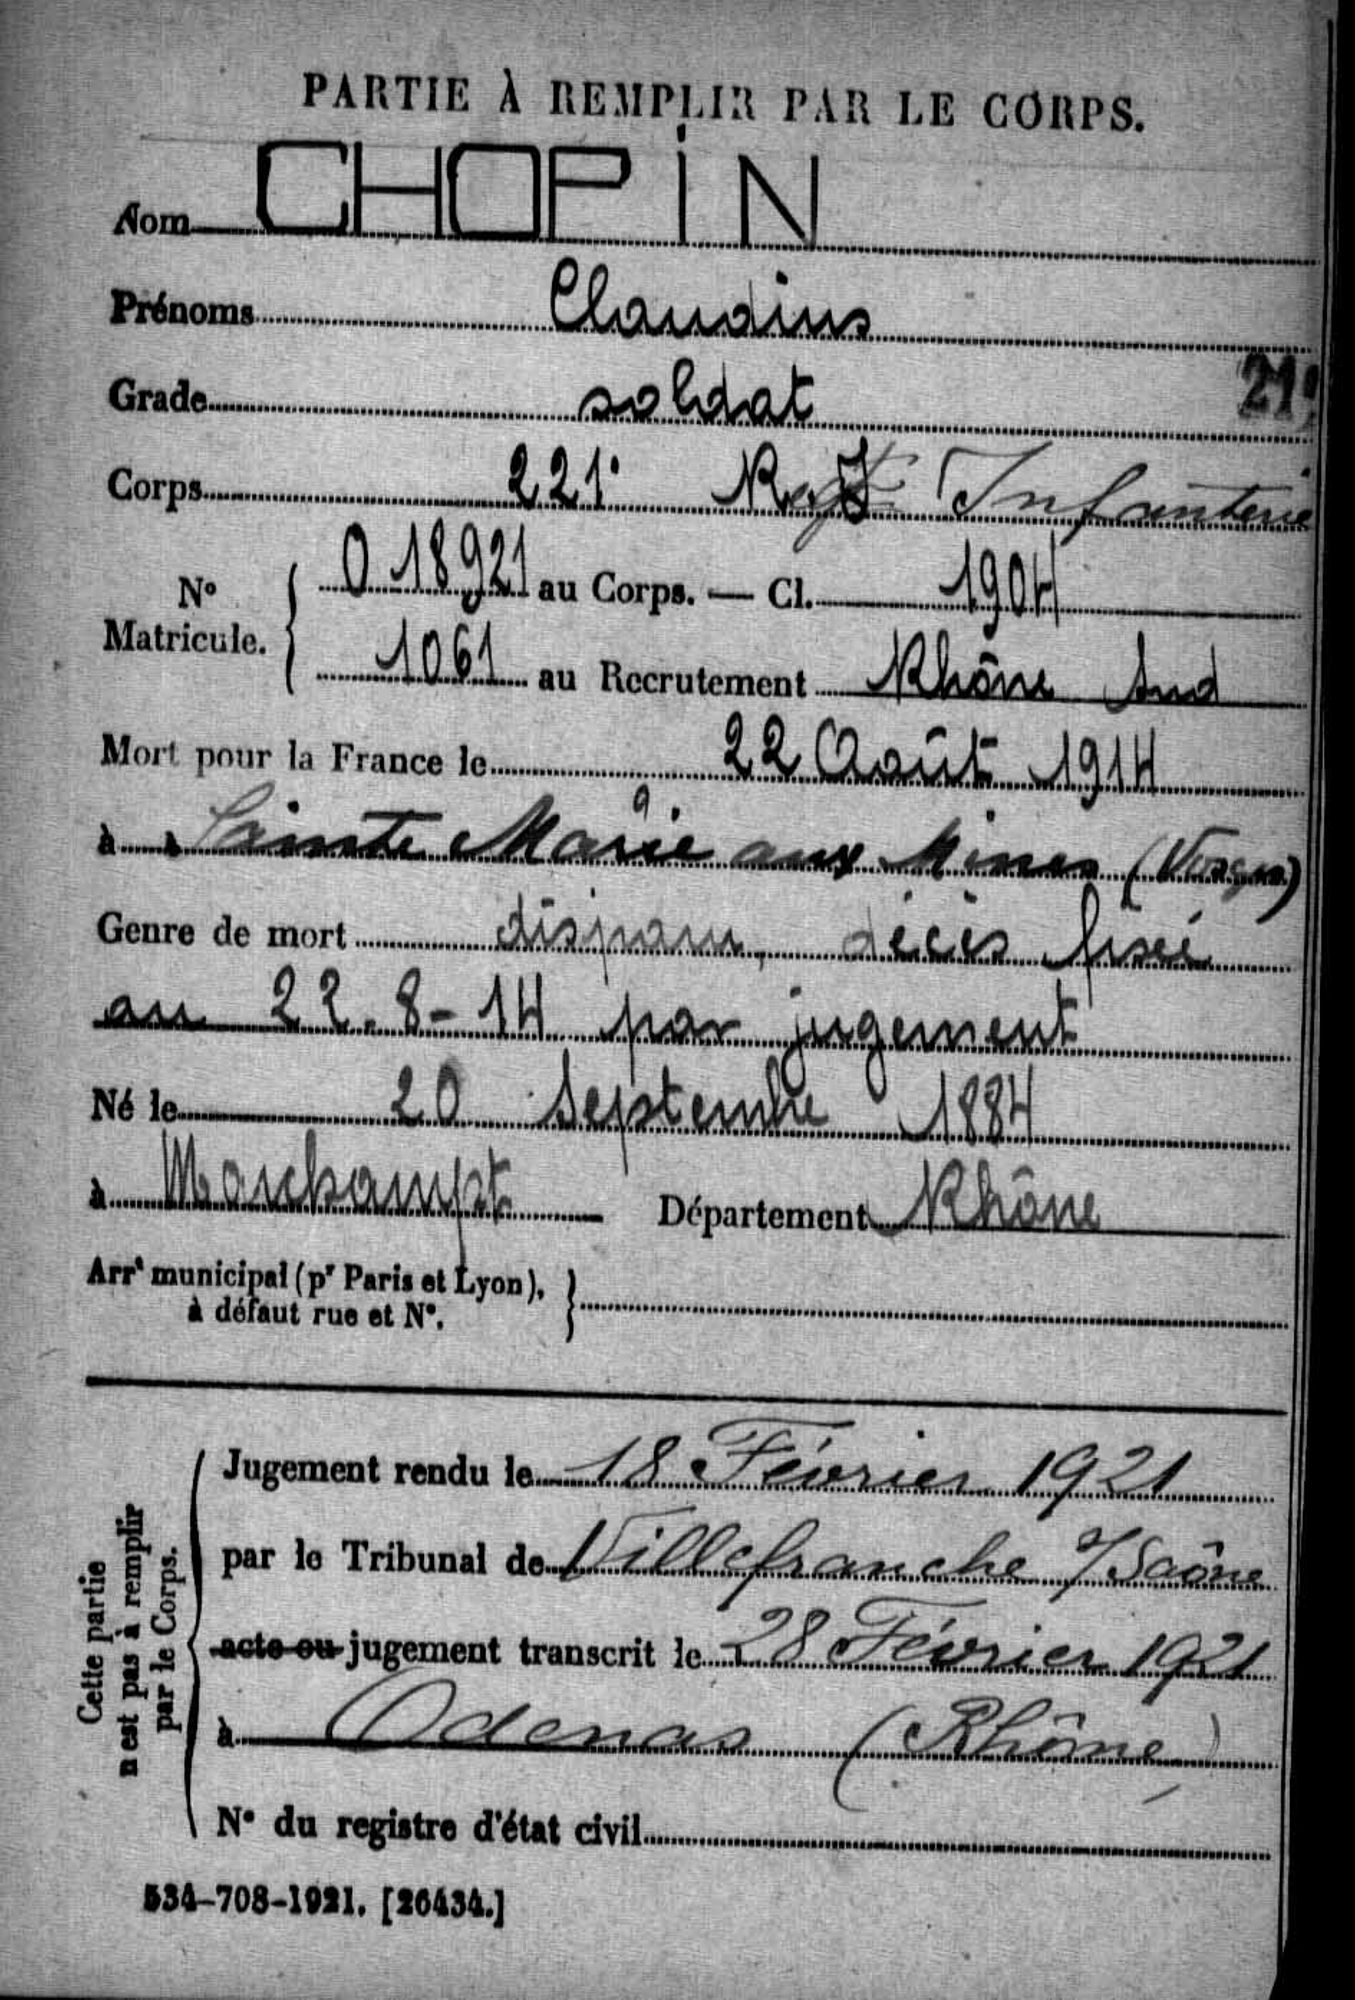 PARTIE À REMPLIR PAR LE CORPS.
Nom CHOPIN
Prénoms Claudius
Grade soldat
21
Corps 221e Regt Infanterie
N° Matricule. { 0 18921 au Corps. — Cl. 1904
1061 au Recrutement Rhône Sud
Mort pour la France le 22 Août 1914
à à Sainte Marie aux Mines (Vosges)
Genre de mort disparu, décès fixé
au 22-8-14 par jugement
Né le 20 Septembre 1884
à Marchampt Département Rhône
Arrt municipal (pr Paris et Lyon),
à défaut rue et N°. }
Cette partie
n'est pas à remplir
par le Corps.
Jugement rendu le 18 Février 1921
par le Tribunal de Villefranche s/Saône
acte ou jugement transcrit le 28 Février 1921
à Odenas (Rhône)
N° du registre d'état civil
534-708-1921. [26434.]